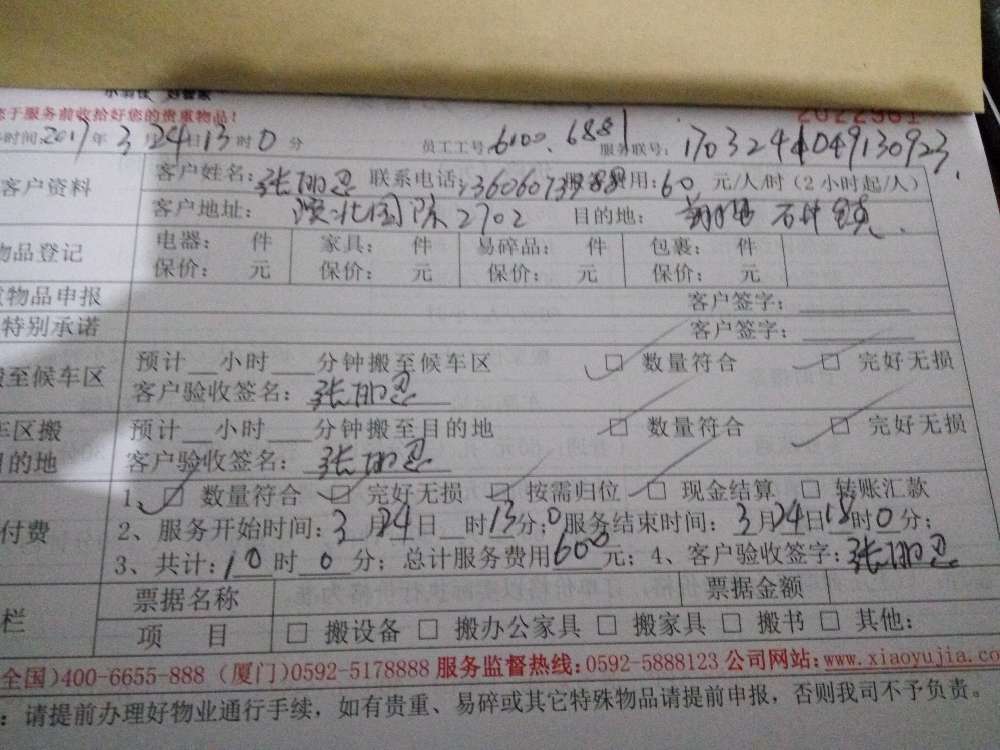 小羽佳 好管家
于服务前收拾好您的贵重物品！
时间:2017年3月24日13时0分 员工工号:6100.6881 服务联号:1703241049130923
客户资料
客户姓名:张丽思 联系电话: 费用:60元/人/时（2小时起/人）
客户地址: 国际2702 目的地:
物品登记
电器: 件 家具: 件 易碎品: 件 包裹: 件
保价: 元 保价: 元 保价: 元 保价: 元
物品申报 客户签字:
特别承诺 客户签字:
搬至候车区
预计__小时___分钟搬至候车区 □ 数量符合 □ 完好无损
客户验收签名:张丽思
车区搬
目的地
预计__小时___分钟搬至目的地 □ 数量符合 □ 完好无损
客户验收签名:张丽思
付费
1、□ 数量符合 □ 完好无损 □ 按需归位 □ 现金结算 □ 转账汇款
2、服务开始时间:3月24日__时13分;0服务结束时间:3月24日18时0分;
3、共计:10时0分;总计服务费用600元;4、客户验收签字:张丽思
栏
票据名称 票据金额
项 目 □ 搬设备 □ 搬办公家具 □ 搬家具 □ 搬书 □ 其他:
全国)400-6655-888 (厦门)0592-5178888 服务监督热线:0592-5888123 公司网站:www.xiaoyujia.co
:请提前办理好物业通行手续，如有贵重、易碎或其它特殊物品请提前申报，否则我司不予负责。